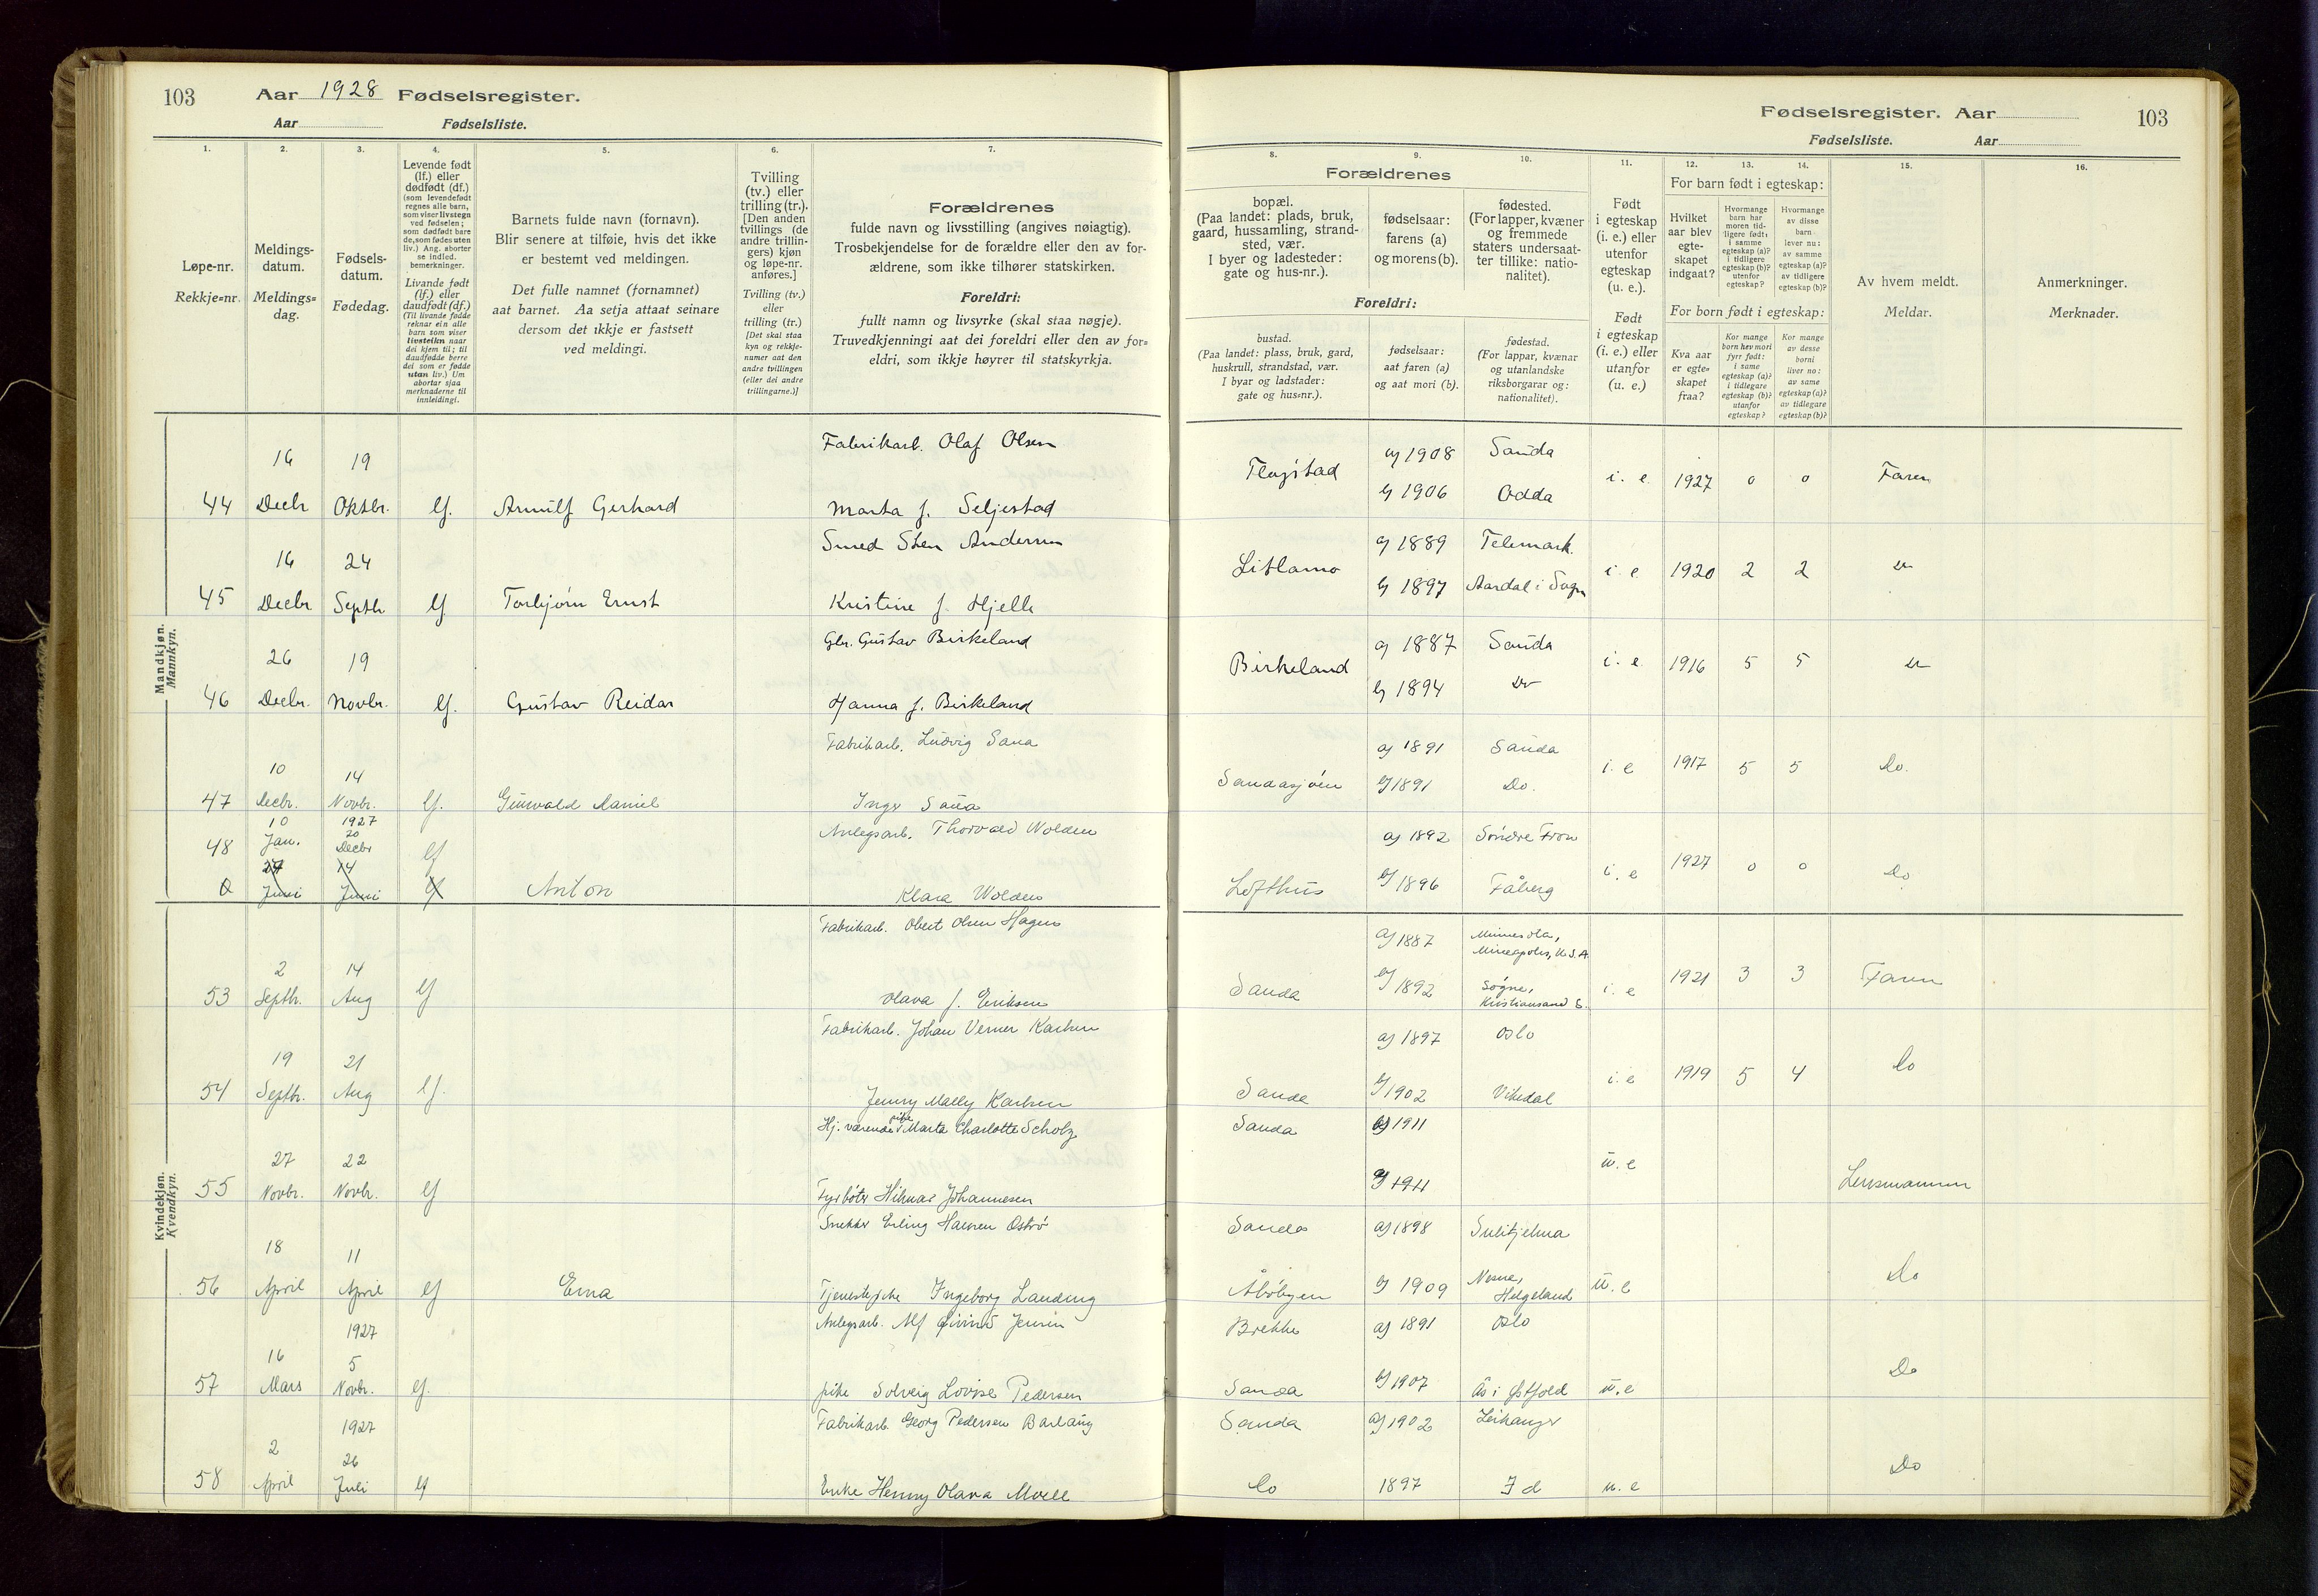 103 Aar 1928 Fødselsregister.
Aar Fødselsliste.
Fødselsregister. Aar 103
Fødselsliste. Aar
1. 2. 3. 4. 5. 6. 7. 8. 9. 10. 11. 12. 13. 14. 15. 16.
Løpe-nr.
Rekkje=nr.
Meldings-
datum.
Meldings=
dag.
Fødsels-
datum.
Fødedag.
Levende født
(lf.) eller
dødfødt (df.)
(som levendefødt
regnes alle barn,
som viser livstegn
ved fødselen;
som dødfødt bare
de, som fødes uten
liv.) Ang. aborter
se indled.
bemerkninger.
Livande født
(lf.) eller
daudfødt (df.)
(Til livande fødde
reknar ein alle
barn som viser
livsteikn naar
dei kjem til; til
daudfødde berre
dei som er fødde
utan liv.) Um
abortar sjaa
merknaderne til
innleidingi.
Barnets fulde navn (fornavn).
Blir senere at tilføie, hvis det ikke
er bestemt ved meldingen.
Det fulle namnet (fornamnet)
aat barnet. Aa setja attaat seinare
dersom det ikkje er fastsett
ved meldingi.
Tvilling
(tv.) eller
trilling (tr.).
[Den anden
tvillings (de
andre trillin-
gers) kjøn
og løpe-nr.
anføres.]
Tvilling (tv.)
eller
trilling (tr.)
[Det skal staa
kyn og rekkje-
numer aat den
andre tvillingen
(eller dei andre
trillingarne.)]
Forældrenes
fulde navn og livsstilling (angives nøiagtig).
Trosbekjendelse for de forældre eller den av for-
ældrene, som ikke tilhører statskirken.
Foreldri:
fullt namn og livsyrke (skal staa nøgje).
Truvedkjenningi aat dei foreldri eller den av for=
eldri, som ikkje høyrer til statskyrkja.
Forældrenes
bopæl.
(Paa landet: plads, bruk,
gaard, hussamling, strand-
sted, vær.
I byer og ladesteder:
gate og hus-nr.).
fødselsaar:
farens (a)
og morens (b).
fødested.
(For lapper, kvæner
og fremmede
staters undersaat-
ter tillike: natio-
nalitet).
Foreldri:
bustad.
(Paa landet: plass, bruk, gard,
huskrull, strandstad, vær.
I byar og ladstader:
gate og hus=nr.).
fødselsaar:
aat faren (a)
og aat mori (b).
fødestad.
(For lappar, kvænar
og utanlandske
riksborgarar og:
nationalitet).
Født
i egteskap
(i. e.) eller
utenfor
egteskap
(u. e.).
Født
i egteskap
(i. e.) eller
utanfor
(u. e.)
For barn født i egteskap:
Hvilket
aar blev
egte-
skapet
indgaat?
Hvormange
barn har
moren tid-
ligere født:
i samme
egteskap (a)?
i tidligere
egteskap (b)?
utenfor
egteskap?
Hvormange
av disse
barn
lever nu:
av samme
egteskap (a)?
av tidligere
egteskap (b)?
For born født i egteskap:
Kva aar
er egte=
skapet
fraa?
Kor mange
born hev mori
fyrr født:
i same
egteskap (a)?
i tidlegare
egteskap (b)?
utanfor
egteskap?
Kor mange
av desse
borni
liver no:
av same
egteskap (a)?
av tidlegare
egteskap (b)?
Av hvem meldt.
Meldar.
Anmerkninger.
Merknader.
Mandkjøn.
Mannkyn.
Fabrikarb. Olaf Olsen a) 1908 Sauda
44 16 Decbr 19 Oktbr. lf. Arnulf Gerhard Marta f. Seljestad Fløgstad b) 1906 Odda i. e. 1927 0 0 Faren
Smed Sten Andersen a) 1889 Telemark.
45 16 Decbr 24 Septbr. lf Torbjørn Ernst Kristine f. Hjelle Litlamo b) 1897 Aardal i Sogn i. e. 1920 2 2 Do
Gbr. Gustav Birkeland a) 1887 Sauda
46 26 Decbr. 19 Novbr. lf. Gustav Reidar Hanna f. Birkeland Birkeland b) 1894 Do i. e. 1916 5 5 Do
Fabrikarb. Ludvig Saua a) 1891 Sauda
47 10 Decbr. 14 Novbr. lf. Gunvald Daniel Inger Saua Saudasjøen b) 1891 Do. i. e 1917 5 5 Do.
Anlegsarb. Thorvald Wolden a) 1892 Søndre Fron
48 10 Jan. 1927 20 Decbr lf
0 24 Juni 14 Juni lf Anton Klara Wolden Lofthus b) 1896 Fåberg i. e 1927 0 0 Do
Kvindekjøn.
Kvendkyn.
Fabrikarb. Obert Olsen Hagen a) 1887 Minnesota, Mineapolis, U.S.A
53 2 Septbr. 14 Aug lf Olava f. Eriksen Sauda b) 1892 Søgne, Kristiansand S. i. e 1921 3 3 Faren
Fabrikarb. Johan Verner Karlsen a) 1897 Oslo
54 19 Septbr. 21 Aug lf. Jenny Mally Karlsen Sauda b) 1902 Vikedal i. e 1919 5 4 Do
Hj. værende pike Marta Charlotte Scholz Sauda b) 1911
55 27 Novbr. 22 Novbr. lf Fyrbøter Hilmar Johannesen a) 1911 u. e Lensmannen
Snekker Erling Hansen Ostrø Sauda a) 1898 Sulitjelma
56 18 April 11 April lf Erna Tjenestepike Ingeborg Landing Åbøbyen b) 1909 Nesna, Helgeland u. e Do
Anlegsarb. Alf Øivind Jensen Brekke a) 1891 Oslo
57 16 Mars 1927 5 Novbr. lf. pike Solveig Lovise Pedersen Sauda b) 1907 Ås i Østfold u. e Do
Fabrikarb. Georg Pedersen Barlaug Sauda a) 1902 Leikanger
58 2 April 1927 26 Juli lf Enke Henny Olava Moell Do 1897 Id u. e Do